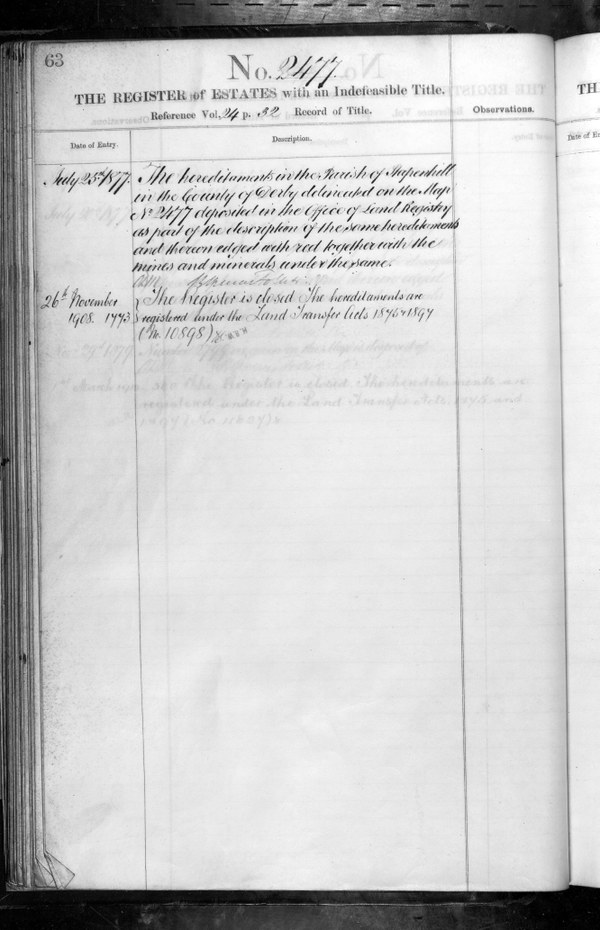 63
No. 2477.
THE REGISTER of ESTATES with an Indefeasible Title.
Reference Vol, 24 p. 32 Record of Title.
Observations.
Date of Entry.
Description.
July 25th 1877.
The hereditaments in the Parish of Stapenhill
in the County of Derby delineated on the Map
No 2477 deposited in the Office of Land Registry
as part of the description of the same hereditaments
and thereon edged with red together with the
mines and minerals under the same.
26th November
1908. 1773
The Register is closed The hereditaments are
registered under the Land Transfer Acts 1875 & 1897
(No. 10898)
TH
Date of En